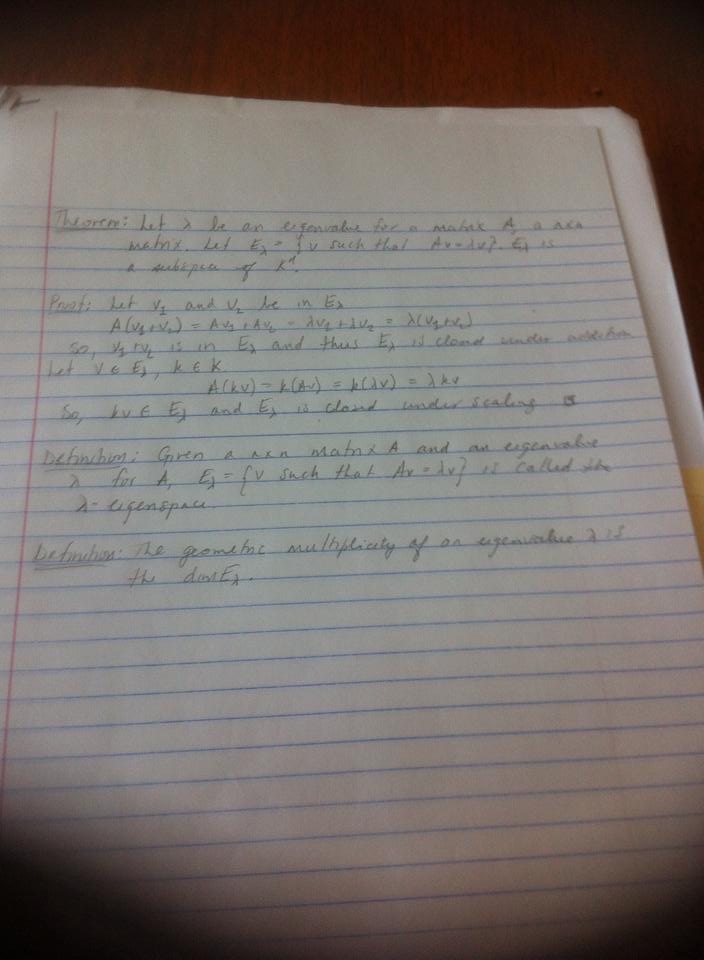 Theorem: Let λ be an eigenvalue for a matrix A, a nxn
matrix. Let E_λ = {v such that Av=λv}. E_λ is
a subspace of Kⁿ.
Proof: Let v₁ and v₂ be in E_λ
A(v₁+v₂) = Av₁+Av₂ = λv₁+λv₂ = λ(v₁+v₂)
So, v₁+v₂ is in E_λ and thus E_λ is closed under addition
Let v ∈ E_λ, k ∈ K.
A(kv) = k(Av) = k(λv) = λkv
So, kv ∈ E_λ and E_λ is closed under scaling
Definition: Given a nxn matrix A and an eigenvalue
λ for A, E_λ = {v such that Av=λv} is called the
λ-eigenspace.
Definition: The geometric multiplicity of an eigenvalue λ is
the dim E_λ.